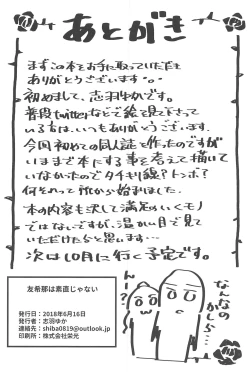 あとがき
まずこの本をお手に取っていただき
ありがとうございます。
初めまして、志羽ゆかです。
普段twitterなどで絵を見て下さって
いる方は、いつもありがとうございます。
今回初めての同人誌を作ったのですが
いままで本にする事を考えて描いて
いなかったのでタチキリ線？トンボ？
何それっ て所から始りました。
本の内容も決して満足のいくモノ
ではないですが、温かい目で見て
いただけたらと思います…
次は10月に行く予定です。
友希那は素直じゃない
発行日：2018年6月16日
発行者：志羽ゆか
連絡先：shiba0819@outlook.jp
印刷所：株式会社栄光
んー？
なんなの
かしら…